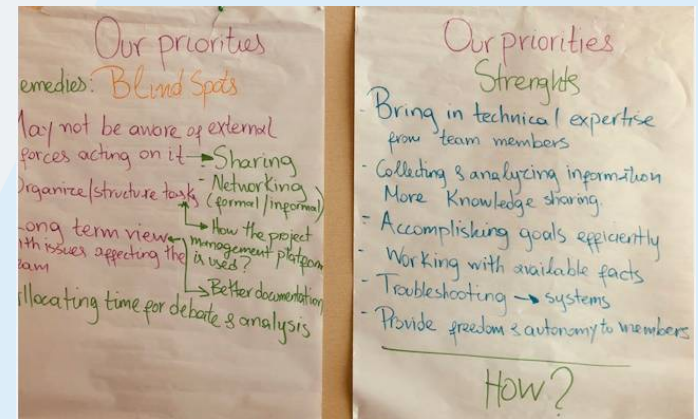 Our priorities
emedies: Blind Spots
May not be aware of external
forces acting on it → Sharing
- Networking
(formal/informal)
Organize/structure tasks
→ How the project
management platform
is used?
Long term view
ith issues affecting the
eam
→ Better documentation
llocating time for debate & analysis
Our priorities
Strenghts
- Bring in technical expertise
from team members
- Collecting & analyzing information
More Knowledge sharing.
- Accomplishing goals efficiently
- Working with available facts
- Troubleshooting → systems
- Provide freedom & autonomy to members
How?